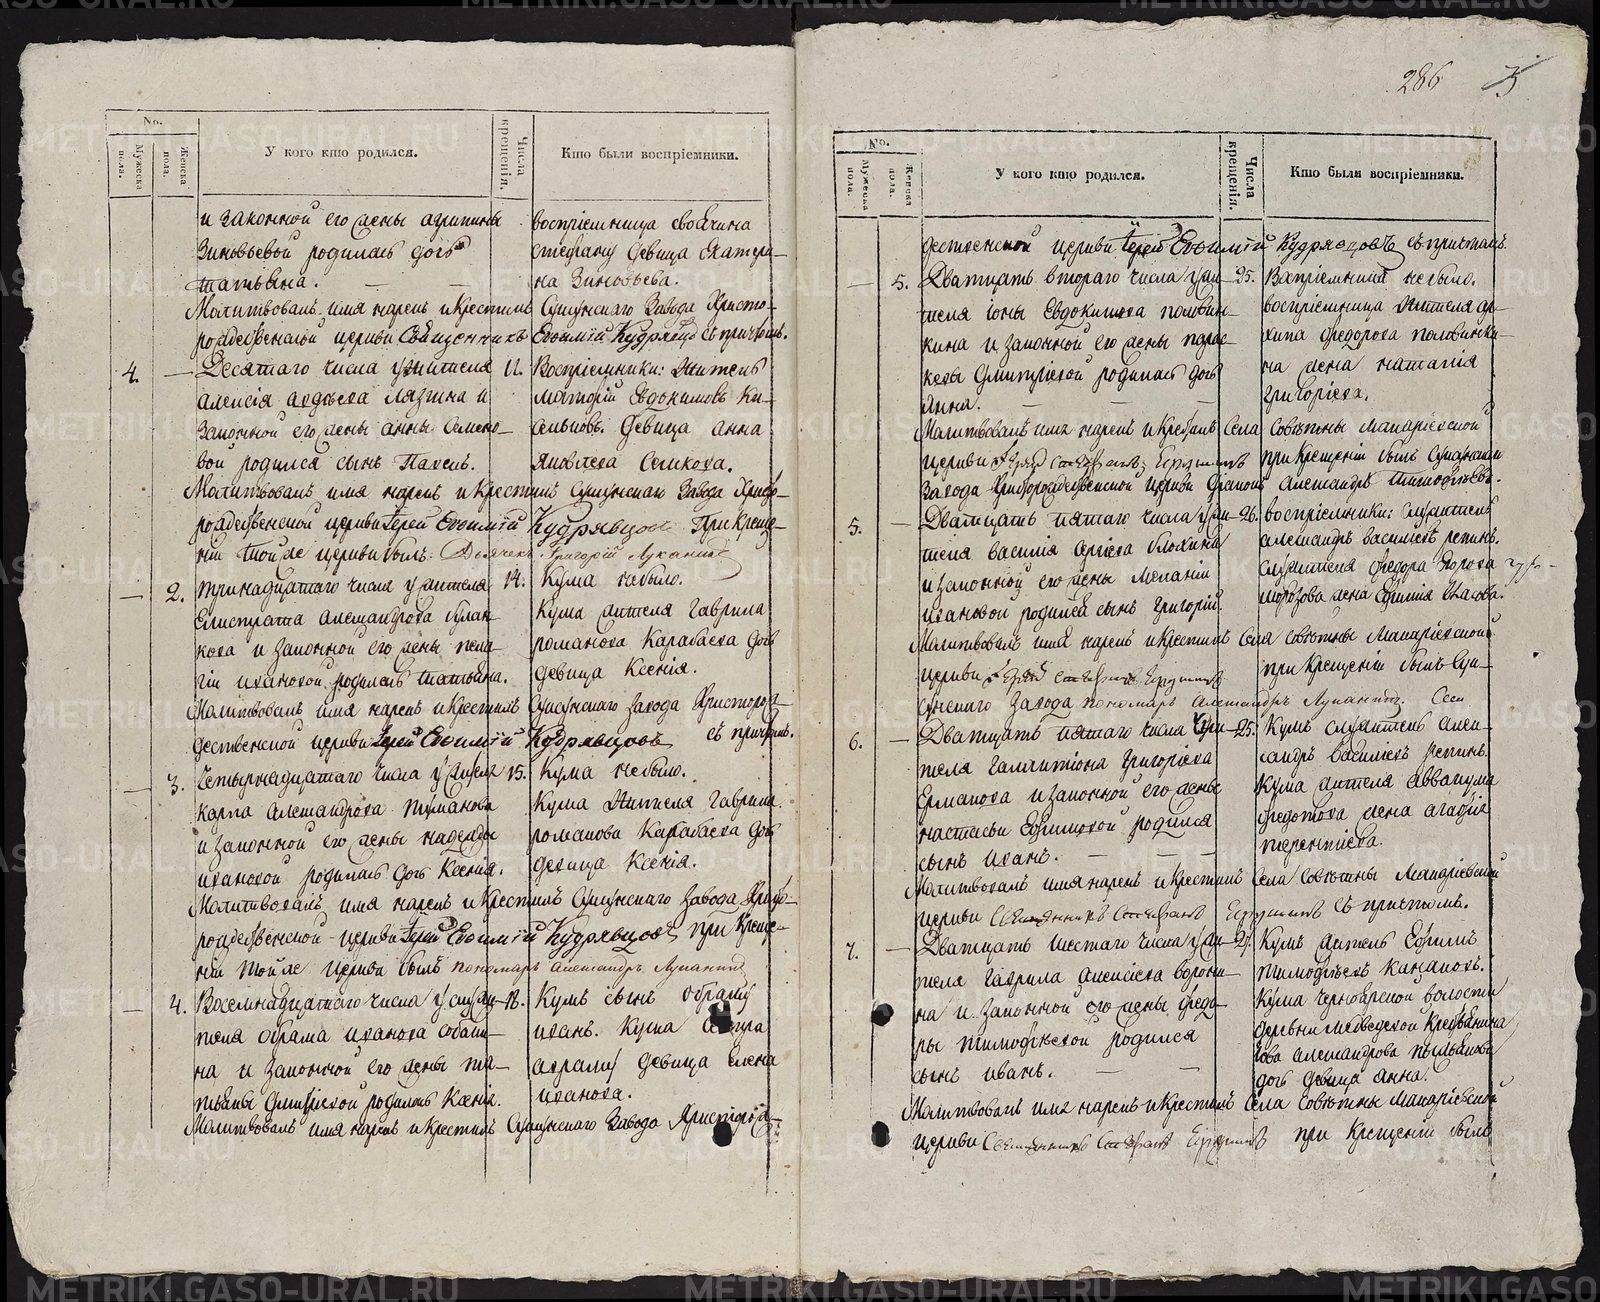 No.
Мужеска пола.
Женска пола.
У кого кто родился.
Числа крещенія.
Кто были воспріемники.
и законной его жены агрипины
Зиновьевой родилась дочь
татьяна.
воспріемница
девица Екатери-
на Зиновьева.
Молитвовалъ имя нарекъ и Крестилъ Сусунскаго Завода Христо-
рождественской церкви Священникъ Евфимій Кудрявцовъ съ причтомъ.
4. — Десятаго числа у жителя 11. Воспріемники: Житель
алексія лязгина и
законной его жены анны Семено-
вой родился сынъ Павелъ.
Евдокимовъ Ки-
девица анна
Яковлева
Молитвовалъ имя нарекъ и Крестилъ Сусунскаго Завода Христо-
рождественской церкви Іерей Евфимій Кудрявцовъ При Креще-
ніи той же церкви былъ: Дьячекъ Григорій Луканинъ
— 2. тринадцатаго числа у жителя 14. Кума небыло.
Елистрата александрова булан-
кова и законной его жены пела-
гіи ивановой родилась татьяна.
Кума жителя Гаврила
романова Карабаева дочь
девица Ксенія.
Молитвовалъ имя нарекъ и Крестилъ Сусунскаго завода Христорож-
дественской церкви Іерей Евфимій Кудрявцовъ съ причтомъ.
— 3. Четырнадцатаго числа у жителя 15. Кума небыло.
карпа Александрова туманова
и законной его жены надежды
ивановой родилась дочь Ксенія.
Кума Жителя Гаврила
романова Карабаева дочь
девица Ксенія.
Молитвовалъ имя нарекъ и Крестилъ Сусунскаго завода Христо-
рождественской церкви Іерей Евфимій Кудрявцовъ при Креще-
ніи той же церкви былъ пономарь александръ Луканинъ
— 4. Восемнадцатаго числа у служи- 18. Кумъ сынъ
теля абрама иванова собаки-
на и законной его жены та-
тьяны Дмитріевой родилась Ксенія.
иванъ. Кума
девица Елена
иванова.
Молитвовалъ имя нарекъ и Крестилъ Сусунскаго Завода Христорож-
286
No.
Мужеска пола.
Женска пола.
У кого кто родился.
Числа крещенія.
Кто были воспріемники.
дественской церкви Іерей Евфимій Кудрявцовъ съ причтомъ.
— 5. Дватцать втораго числа у жи- 25. Воспріемника небыло.
теля іоны Евдокимова половин-
кина и законной его жены парас-
кевы Дмитріевой родилась дочь
Анна.
воспріемница Жителя ар-
хипа федорова половинки-
на жена наталія
григоріева.
Молитвовалъ имя нарекъ и Крестилъ Села Совѣтны Макаріевской
церкви Іерей Стефанъ при Крещеніи былъ Сусунскаго
завода Христорождественской церкви дьяконъ александръ тимофѣевъ.
5. — Дватцать пятаго числа у жи- 26. воспріемники: служитель
теля василія Сергіева блохина
и законной его жены Меланіи
ивановой родился сынъ григорій.
александръ василіевъ репинъ.
служителя федора
морозова жена
Молитвовалъ имя нарекъ и Крестилъ Села Совѣтны Макаріевской
церкви Іерей Стефанъ при Крещеніи былъ Сус-
унскаго Завода пономарь александръ Луканинъ.
6. — Дватцать пятаго числа у жи- 25. Кумъ служитель алек-
теля галактіона григоріева
Ермакова и законной его жены
настасьи Ефимовой родился
сынъ иванъ.
сандръ василіевъ репинъ.
Кума жителя аввакума
федотова жена агафія
терентіева.
Молитвовалъ имя нарекъ и Крестилъ Села Совѣтны Макаріевской
церкви Священникъ Стефанъ съ причтомъ.
7. — Дватцать шестаго числа у жи- 27. Кумъ житель Ефимъ
теля гаврила алексіева ворони-
на и законной его жены федо-
ры тимофѣевой родился
сынъ иванъ.
тимофѣевъ Казаковъ.
Кума Черноярской волости
деревни медведской Крестьянина
александрова
дочь девица анна.
Молитвовалъ имя нарекъ и Крестилъ Села Совѣтны Макаріевской
церкви Священникъ Стефанъ при Крещеніи былъ
METRIKI.GASO-URAL.RU